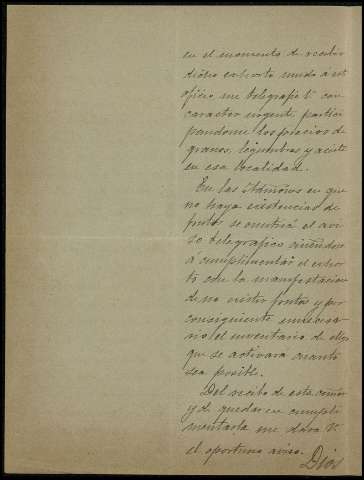 en el momento de recibir
dicho exhorto unido á este
oficio, me telegrafie V. con
caracter urgente, partici
pandome los precios de
granos, legumbres y aceite
en esa localidad.
En las Admones en que
no haya existencias de
frutos se omitirá el avi
so telegrafico
á cumplimentar el exhor
to con la manifestacion
de no existir frutos y por
consiguiente innecesa
rio el inventario de ellos
que se activará cuanto
sea posible.
Del recibo de esta comon
y de quedar en cumpli
mentarla me dará V.
el oportuno aviso.
Dios